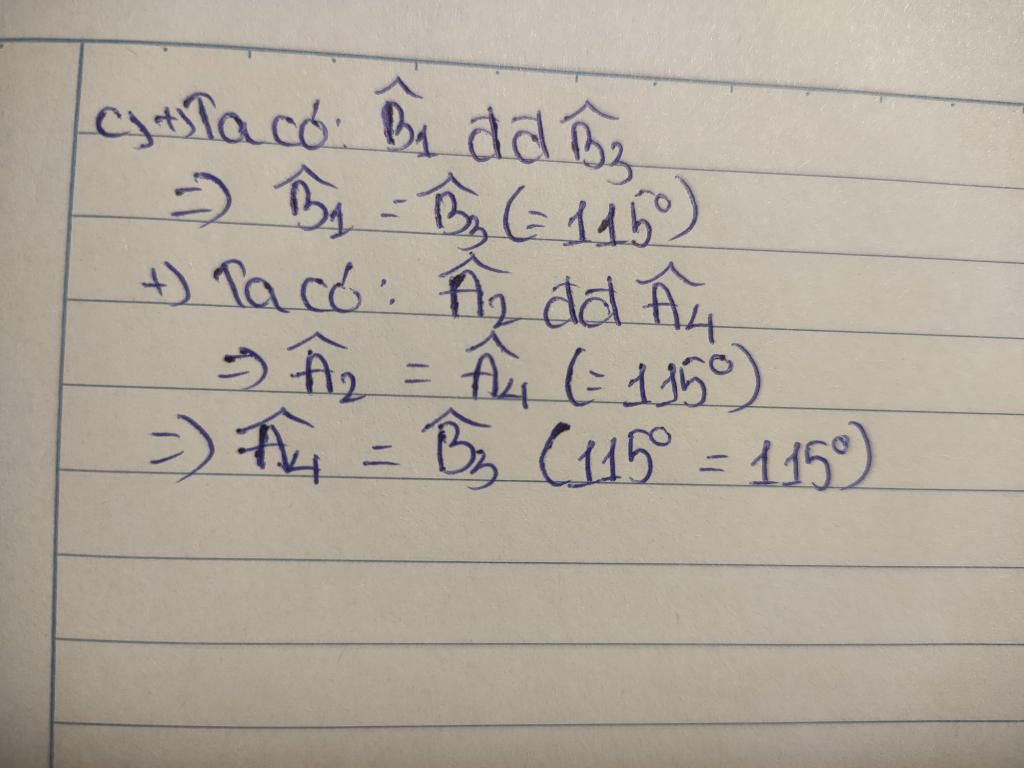 c) +) Ta có: B̂1 dd B̂3
=> B̂1 = B̂3 (= 115°)
+) Ta có: Â2 dd Â4
=> Â2 = Â4 (= 115°)
=> Â4 = B̂3 (115° = 115°)